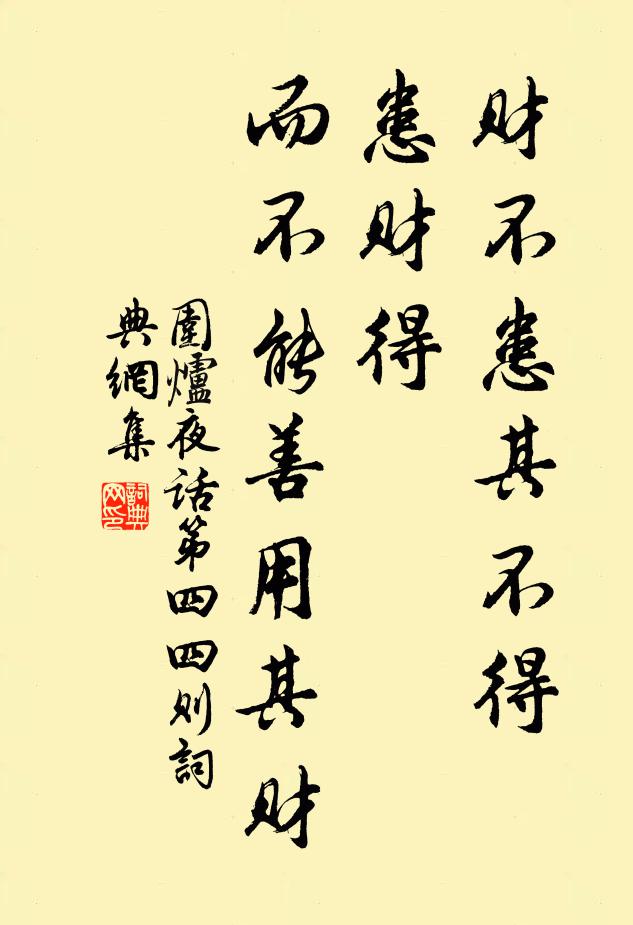 財不患其不得
患財得
而不能善用其財
圍爐夜话第四四则詞
典網集
詞典
网印